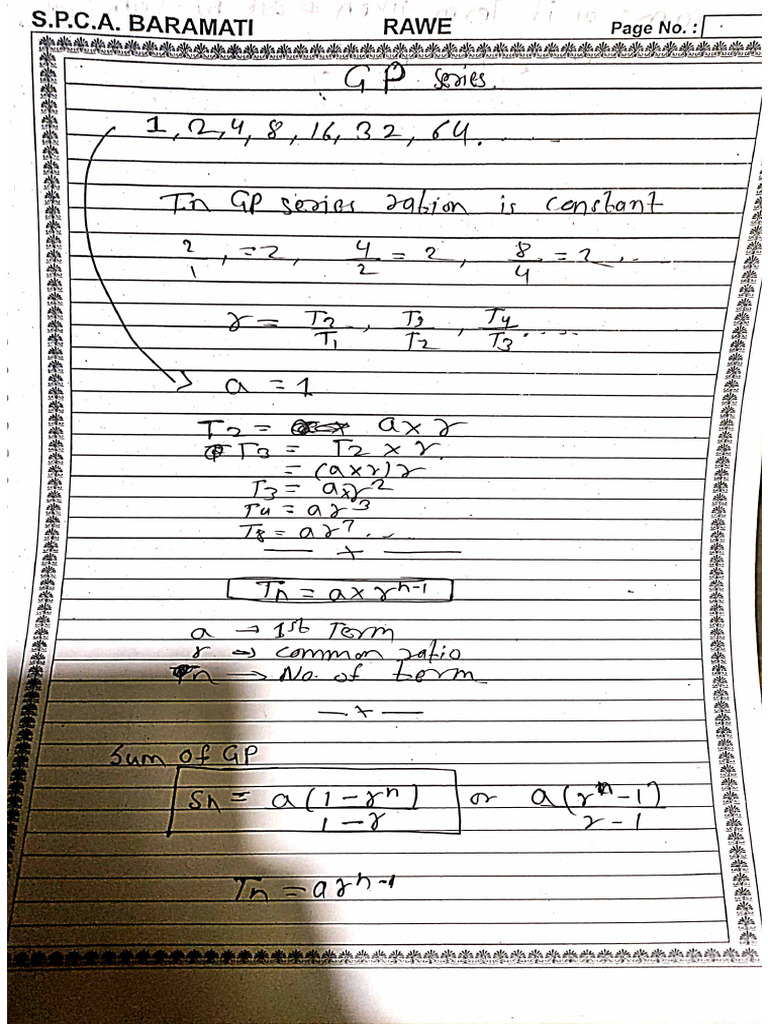 S.P.C.A. BARAMATI RAWE Page No. :
GP series.
1, 2, 4, 8, 16, 32, 64. . . .
In GP series ration is constant
2/1, = 2, 4/2 = 2, 8/4 = 2 . . .
r = T2/T1, T3/T2, T4/T3 . . . .
a = 1
T2 = a x r
T3 = T2 x r.
= (a x r) r
T3 = a x r^2
T4 = a r^3
T8 = a r^7 . . .
— x —
Tn = a x r^n-1
a → 1st Term
r → common ratio
n → No. of term
— x —
Sum of GP
Sn = a(1 - r^n)/1 - r or a(r^n - 1)/r - 1
Tn = a r^n-1